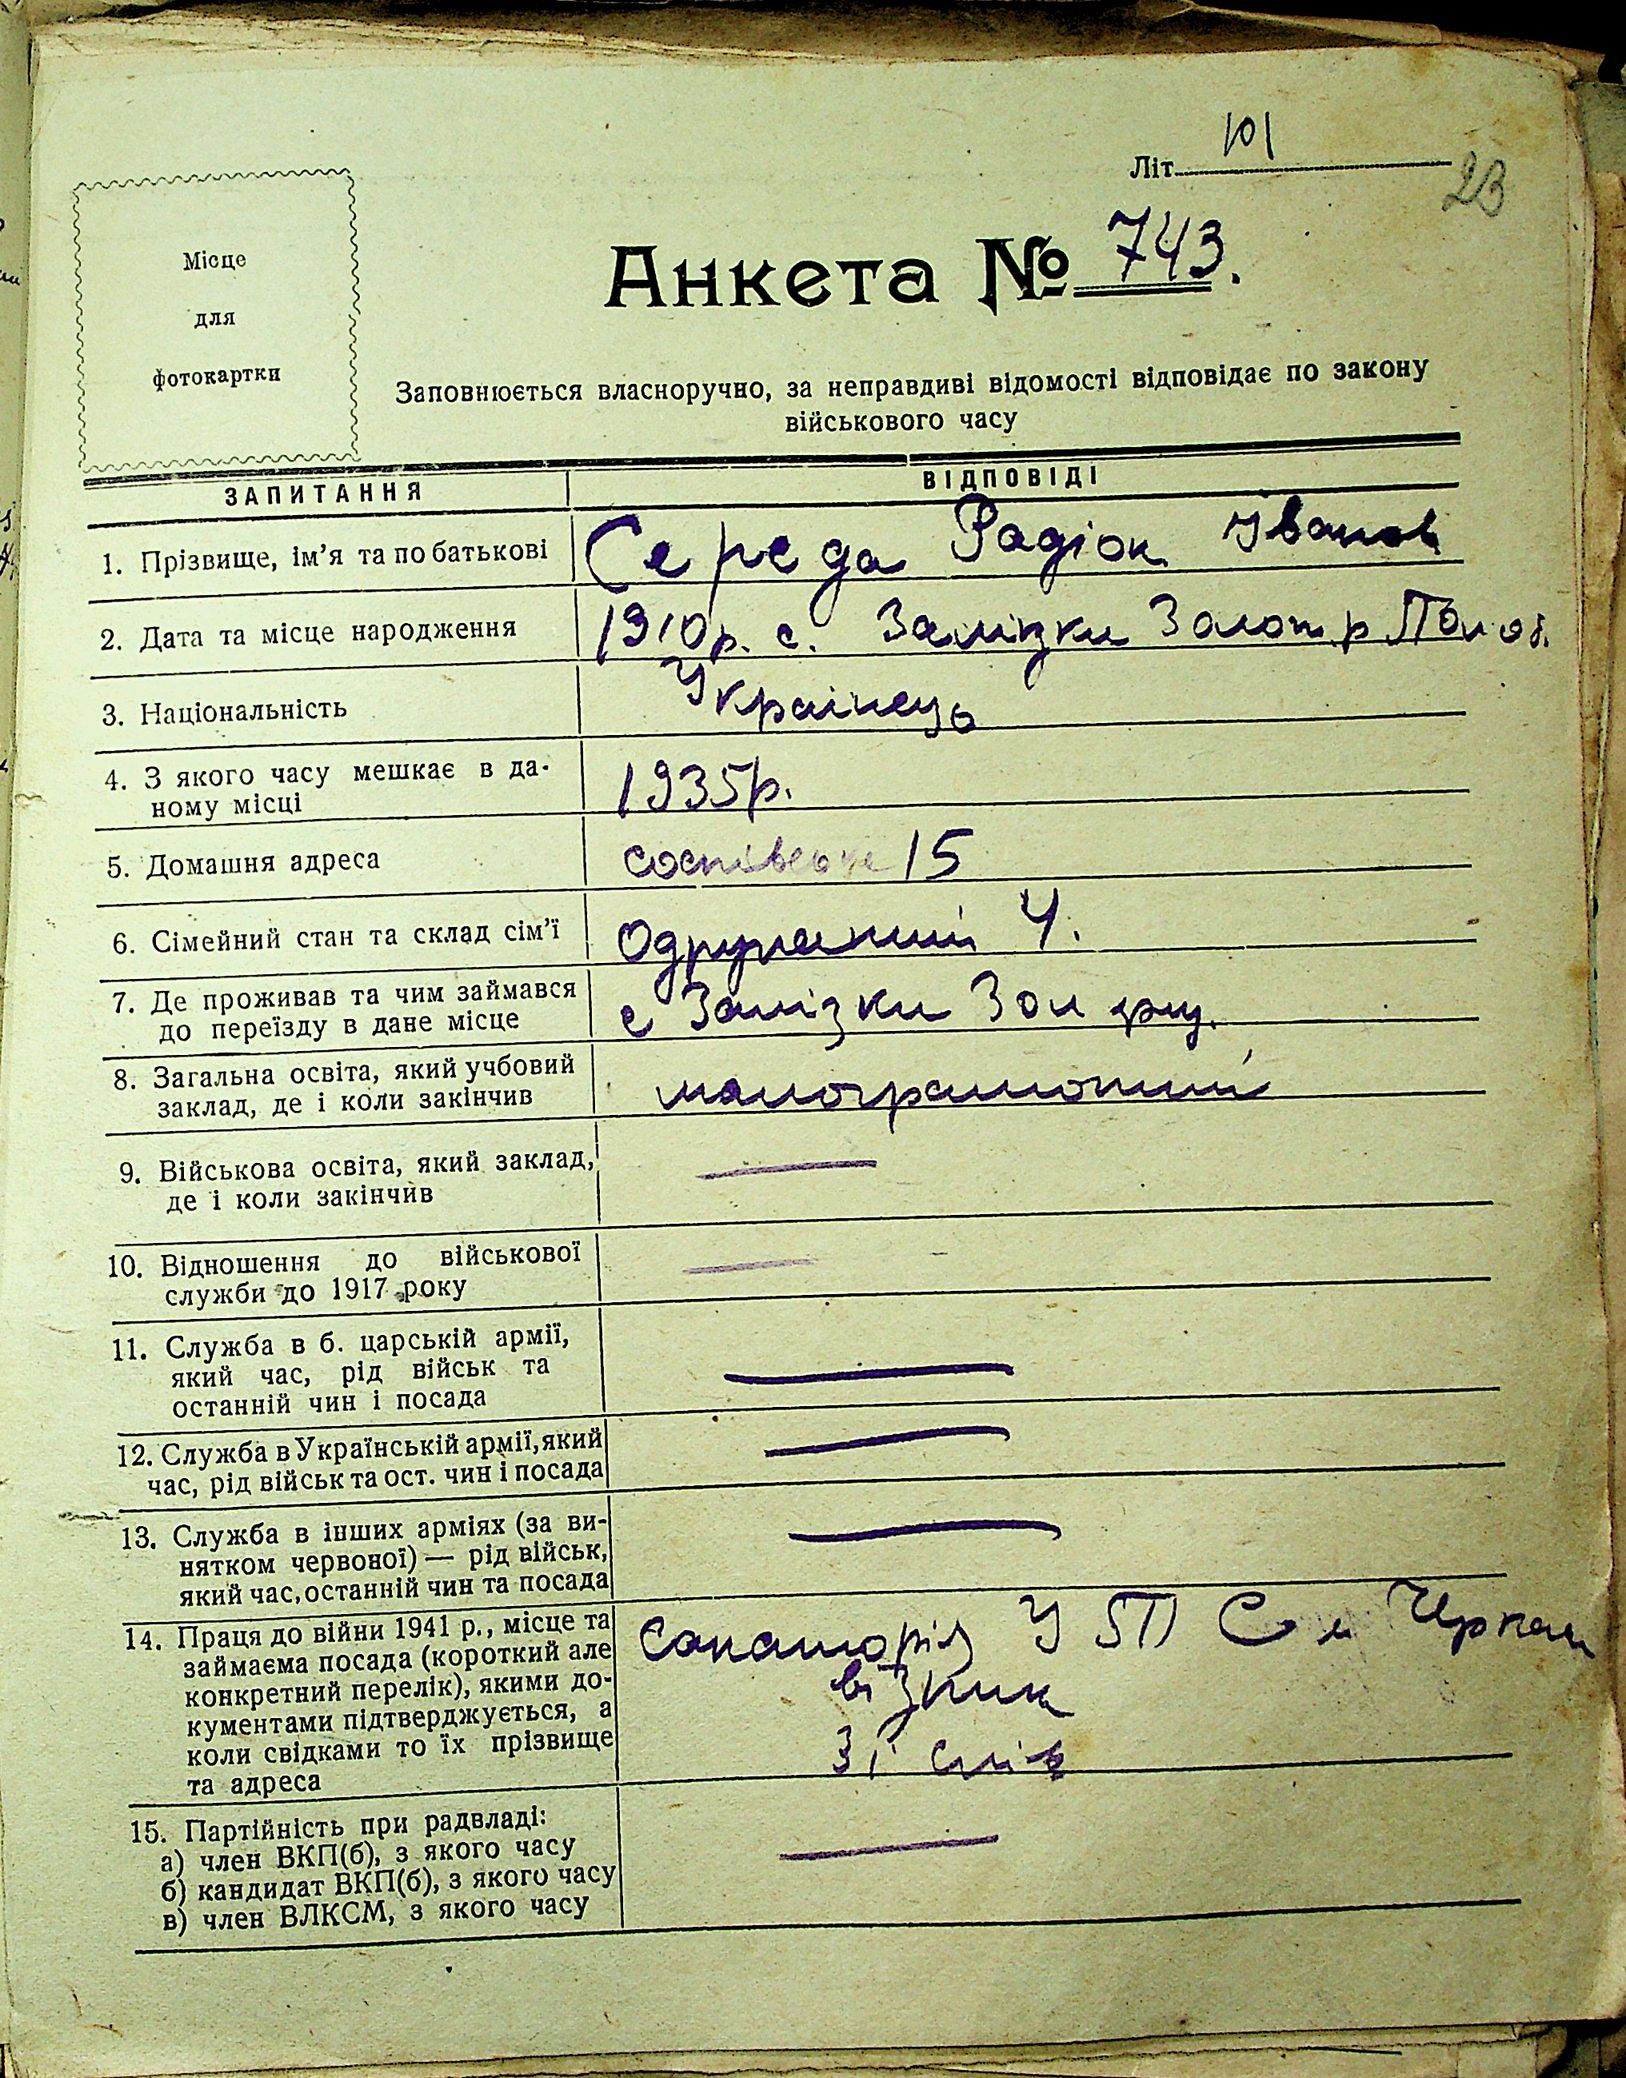 Літ. 101
23
Місце
для
фотокартки
Анкета № 743.
Заповнюється власноручно, за неправдиві відомості відповідає по закону
військового часу
ЗАПИТАННЯ ВІДПОВІДІ
1. Прізвище, ім'я та по батькові Середа Радіон Іванов
2. Дата та місце народження 1910р. с. Залізки Золот. р
3. Національність Українець
4. З якого часу мешкає в да-
ному місці 1935р.
5. Домашня адреса 15
6. Сімейний стан та склад сім'ї Одружений 4.
7. Де проживав та чим займався
до переїзду в дане місце с Залізки Зол
8. Загальна освіта, який учбовий
заклад, де і коли закінчив малограмотний
9. Військова освіта, який заклад,
де і коли закінчив —
10. Відношення до військової
служби до 1917 року —
11. Служба в б. царській армії,
який час, рід військ та
останній чин і посада —
12. Служба в Українській армії, який
час, рід військ та ост. чин і посада —
13. Служба в інших арміях (за ви-
нятком червоної) — рід військ,
який час, останній чин та посада —
14. Праця до війни 1941 р., місце та
займаєма посада (короткий але
конкретний перелік), якими до-
кументами підтверджується, а
коли свідками то їх прізвище
та адреса
Санаторія
візник
Зі слів
15. Партійність при радвладі:
а) член ВКП(б), з якого часу
б) кандидат ВКП(б), з якого часу
в) член ВЛКСМ, з якого часу —